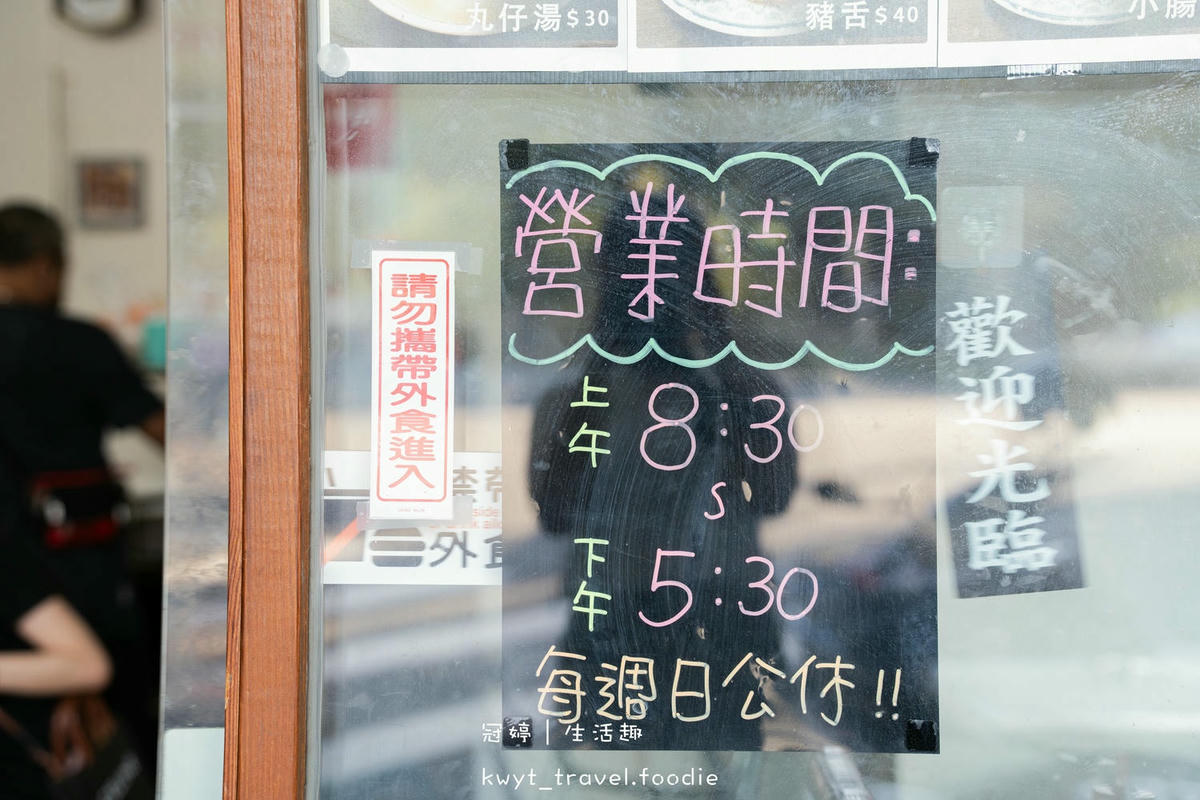 丸仔湯$30
豬舌$40
小腸
營業時間:
請勿攜帶外食進入
歡迎光臨
上午 8:30
S
下午 5:30
禁帶
外食
每週日公休!!
冠婷|生活趣
kwyt_travel.foodie